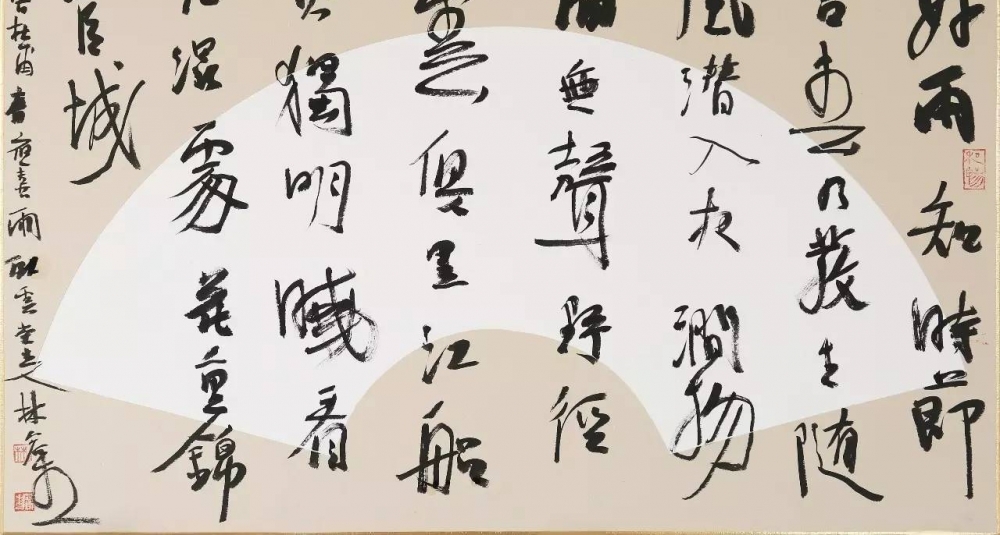 好雨知時節
當春乃發生隨
風潛入夜潤物
細無聲野徑
雲俱黑江船
火獨明曉看
紅濕處花重錦
官城
杜甫春夜喜雨 雲堂 林